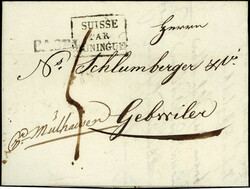 SUISSE
PAR
HUNINGUE
BASEL
Herrn
Ns. Schlumberger & Co.
Gebwiler
pr Mülhausen
5